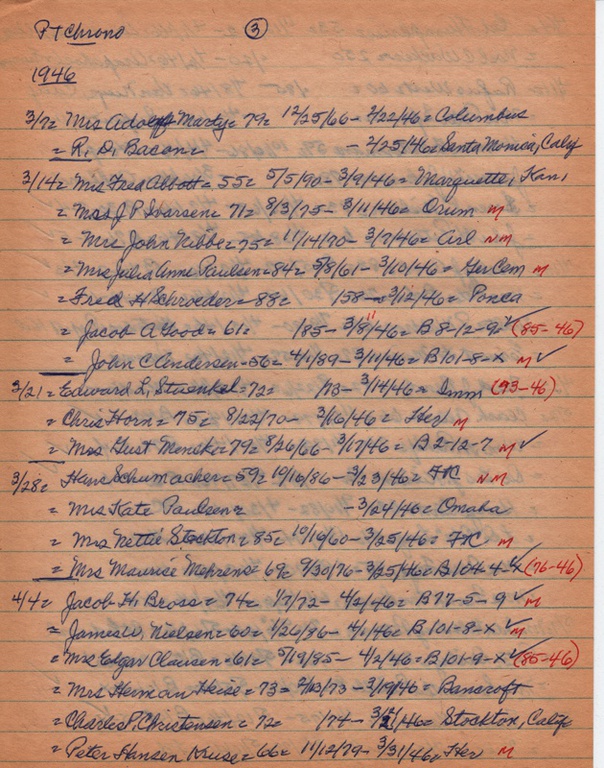 P+Chrono ③
1946
3/7= Mrs Adolph Marty= 79= 12/25/66 - 2/22/46= Columbus
= R. D. Bacon= - 2/25/46= Santa Monica, Calif
3/14= Mrs Fred Abbott= 55= 5/5/90 - 3/9/46= Marquette, Kan.
= Mrs J P Ivarsen= 71= 8/3/75 - 3/11/46= Orum M
= Mrs John Kibbe= 75= 11/14/70 - 3/7/46= Arl NM
= Mrs Julia Anne Paulsen= 84= 5/8/61 - 3/10/46= Ger Cem M
= Fred H Schroeder= 88= /58 - 3/12/46= Ponca
= Jacob A Good= 61= /85 - 3/8/46= 11 B 8-12-9 ✓ (85-46)
= John C Andersen= 56= 4/1/89 - 3/11/46= B 101-8-X M ✓
3/21= Edward L. Stuenkel= 72= /73 - 3/14/46= Imm (73-46)
= Chris Horn= 75= 8/22/70 - 3/16/46= Her M
= Mrs Gust Menck= 79= 8/26/66 - 3/17/46= B 2-12-7 M ✓
3/28= Hans Schumacher= 59= 10/16/86 - 3/23/46= FK NM
= Mrs Kate Paulsen= - 3/24/46= Omaha
= Mrs Nettie Stockton= 85= 10/10/60 - 3/25/46= FK M
= Mrs Maurice Mehrens= 69= 9/30/76 - 3/25/46= B 104-4-X ✓ (76-46)
4/4= Jacob H. Bross= 74= 1/7/72 - 4/2/46= B 77-5-9 ✓ M
= James W. Nielsen= 60= 1/26/86 - 4/1/46= B 101-8-X ✓ M
= Mrs Edgar Clausen= 61= 5/19/85 - 4/2/46= B 101-9-X ✓ (85-46)
= Mrs Herman Heise= 73= 2/13/73 - 3/19/46= Bancroft
= Charles P. Christensen= 72= /74 - 3/21/46= Stockton, Calif
= Peter Hansen Kruse= 66= 11/12/79 - 3/31/46= Her M